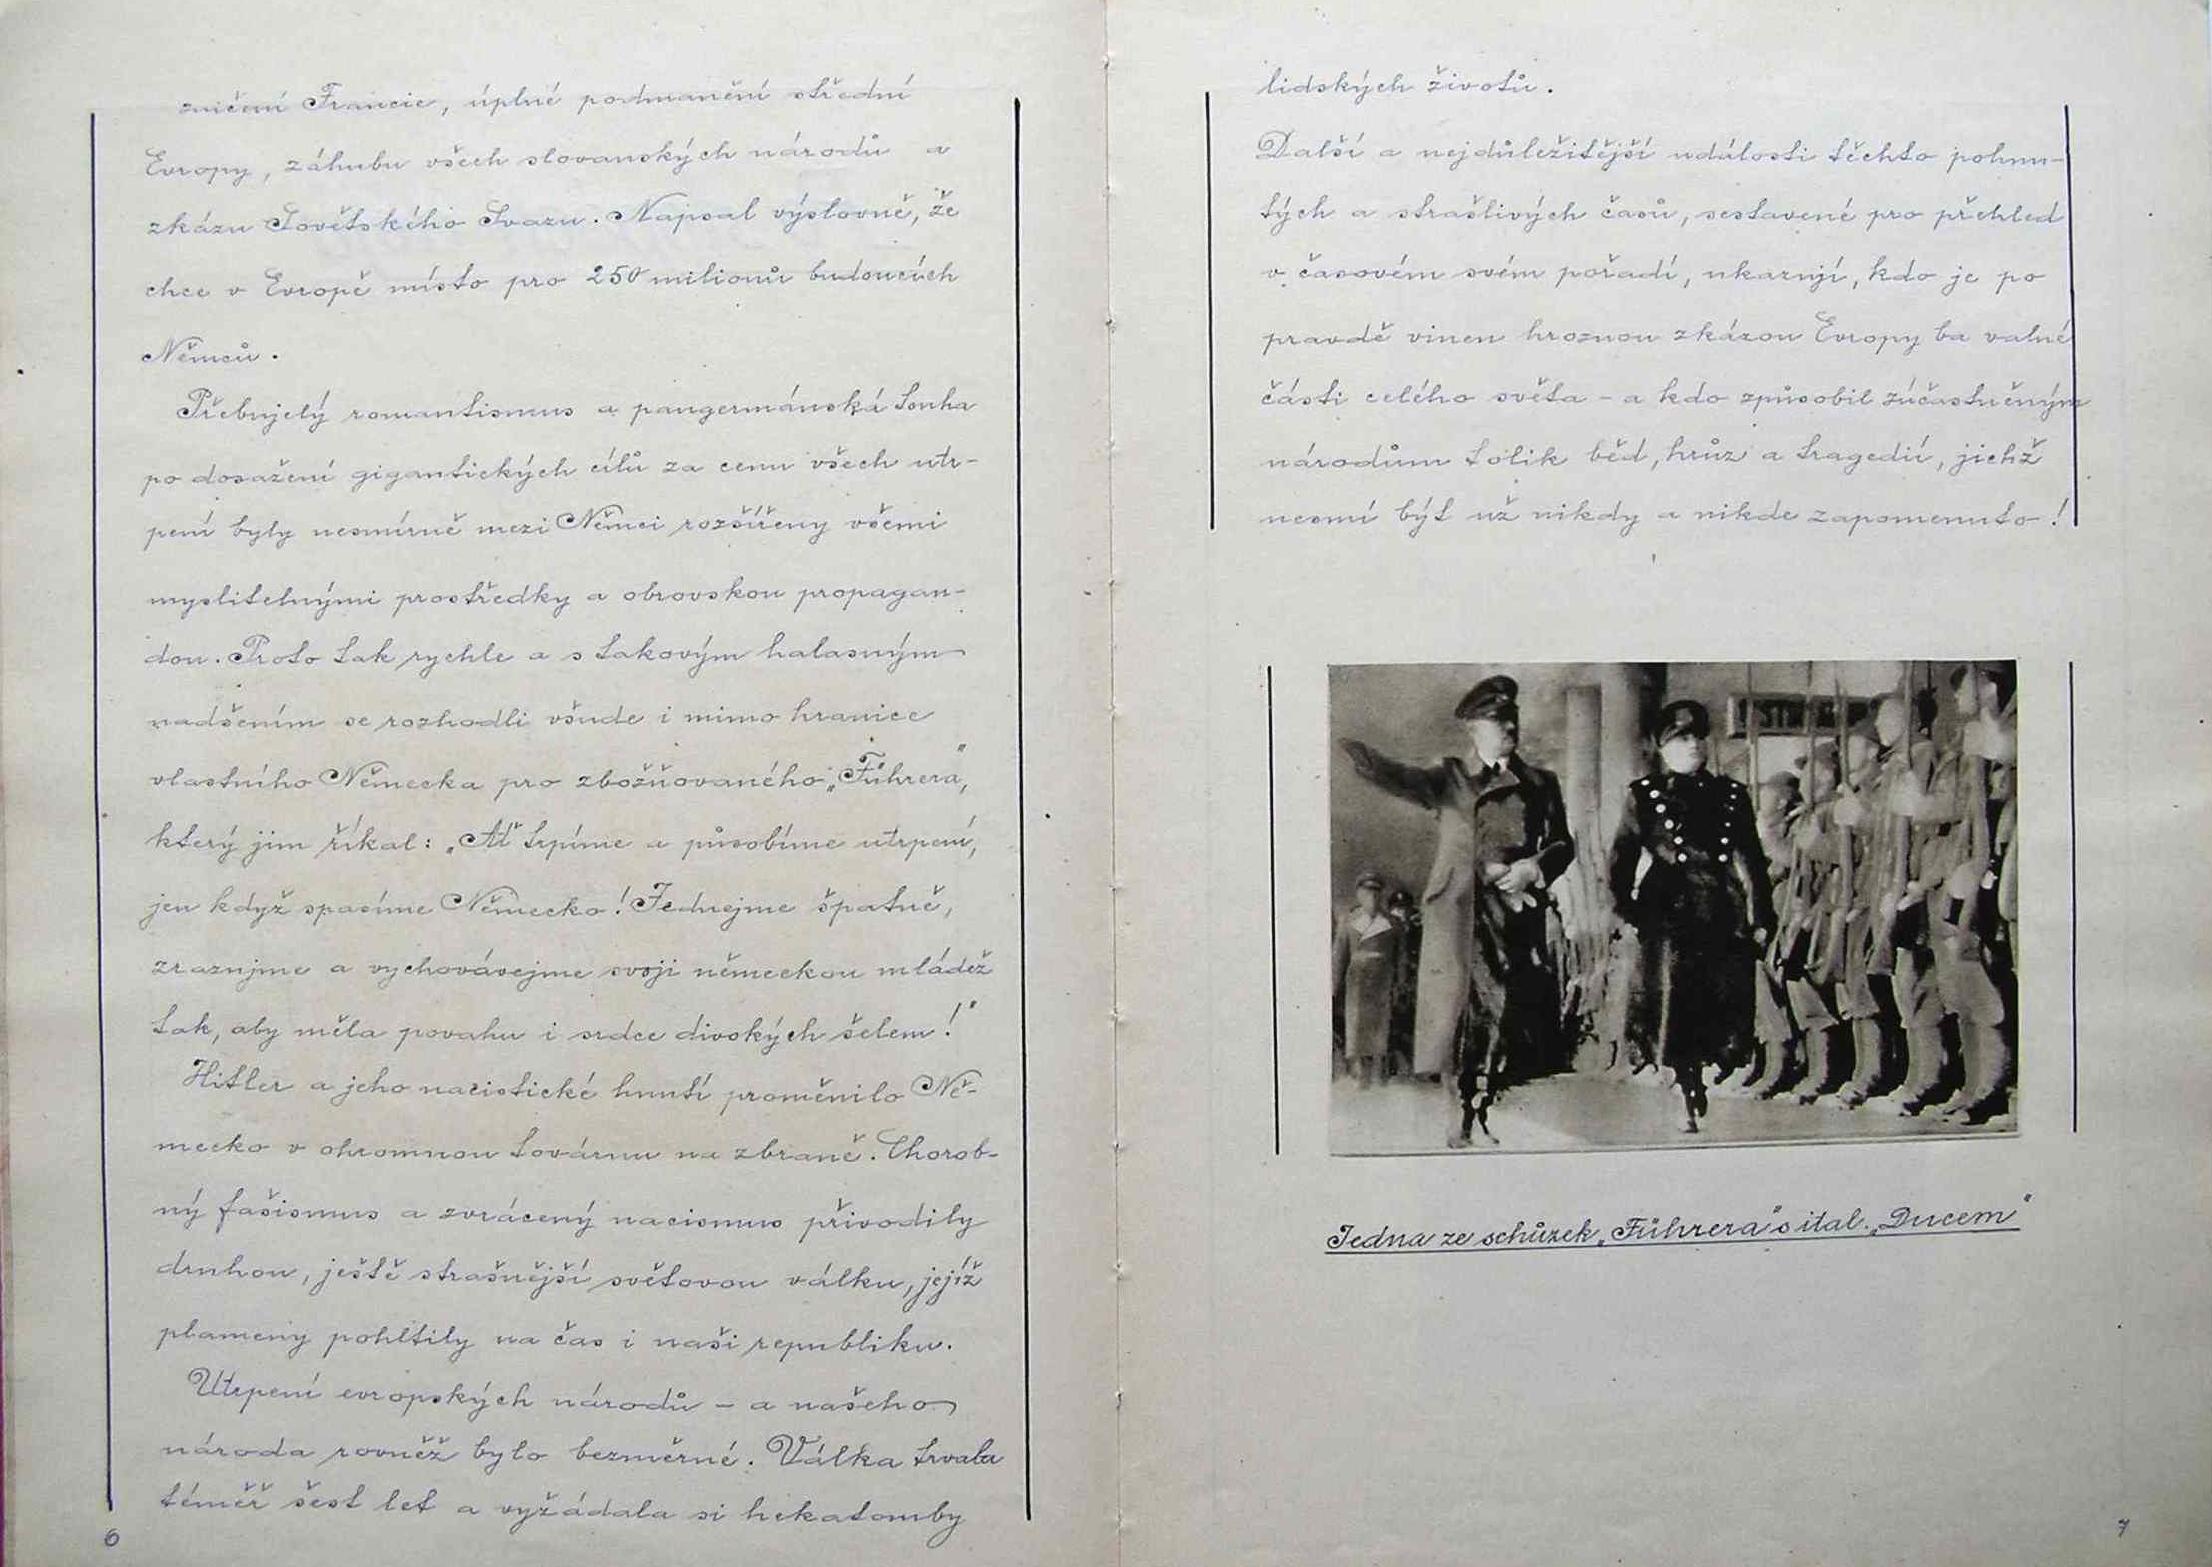 zničení Francie, úplné podmanění střední
Evropy, záhubu všech slovanských národů a
zkázu Sovětského Svazu. Napsal výslovně, že
chce v Evropě místo pro 250 milionů budoucích
Němců.
Přebujelý romantismus a pangermánská touha
po dosažení gigantických cílů za cenu všech utr-
pení byly nesmírně mezi Němci rozšířeny všemi
myslitelnými prostředky a obrovskou propagan-
dou. Proto tak rychle a s takovým halasným
nadšením se rozhodli všude i mimo hranice
vlastního Německa pro zbožňovaného „Führera",
který jim říkal: „Ať trpíme a působíme utrpení,
jen když spasíme Německo! Jednejme špatně,
zrazujme a vychovávejme svoji německou mládež
tak, aby měla povahu i srdce divokých šelem!"
Hitler a jeho nacistické huntí proměnilo Ně-
mecko v ohromnou továrnu na zbraně. Chorob-
ný fašismus a zvrácený nacismus přivodily
druhou, ještě strašnější světovou válku, jejíž
plameny pohltily na čas i naši republiku.
Utrpení evropských národů – a našeho
národa rovněž bylo bezměrné. Válka trvala
téměř šest let a vyžádala si hekatomby
6
lidských životů.
Další a nejdůležitější události těchto pohnu-
tých a strašlivých časů, sestavené pro přehled
v časovém svém pořadí, ukazují, kdo je po
pravdě vinen hroznou zkázou Evropy ba valné
části celého světa – a kdo způsobil zúčastněným
národům tolik běd, hrůz a tragedií, jichž
nesmí být už nikdy a nikde zapomenuto!
Jedna ze schůzek „Führera" s ital. „Ducem"
7